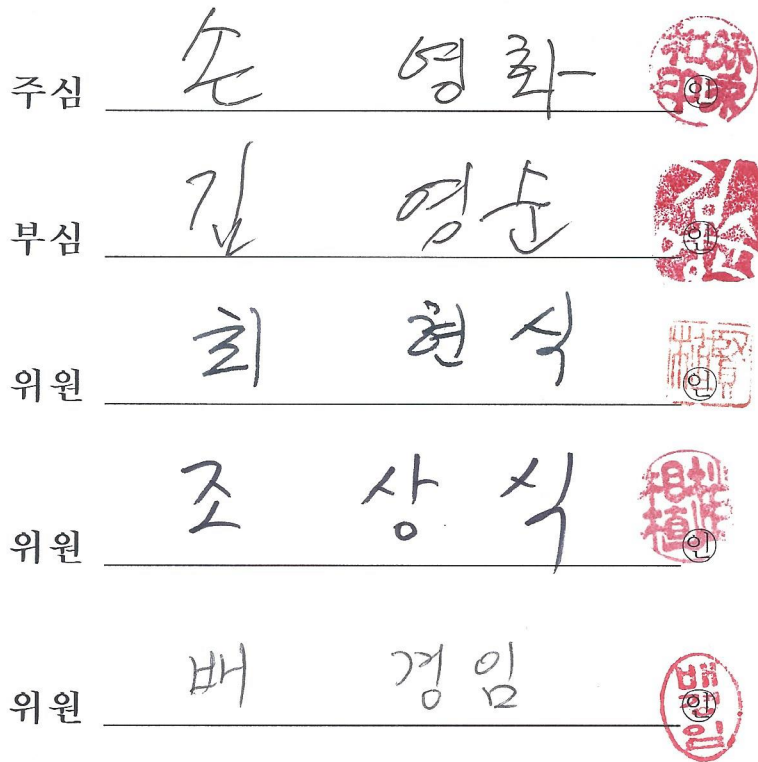 주심 손 영화 인
부심 김 영순 인
위원 최 현식 인
위원 조 상식 인
위원 배 경임 인